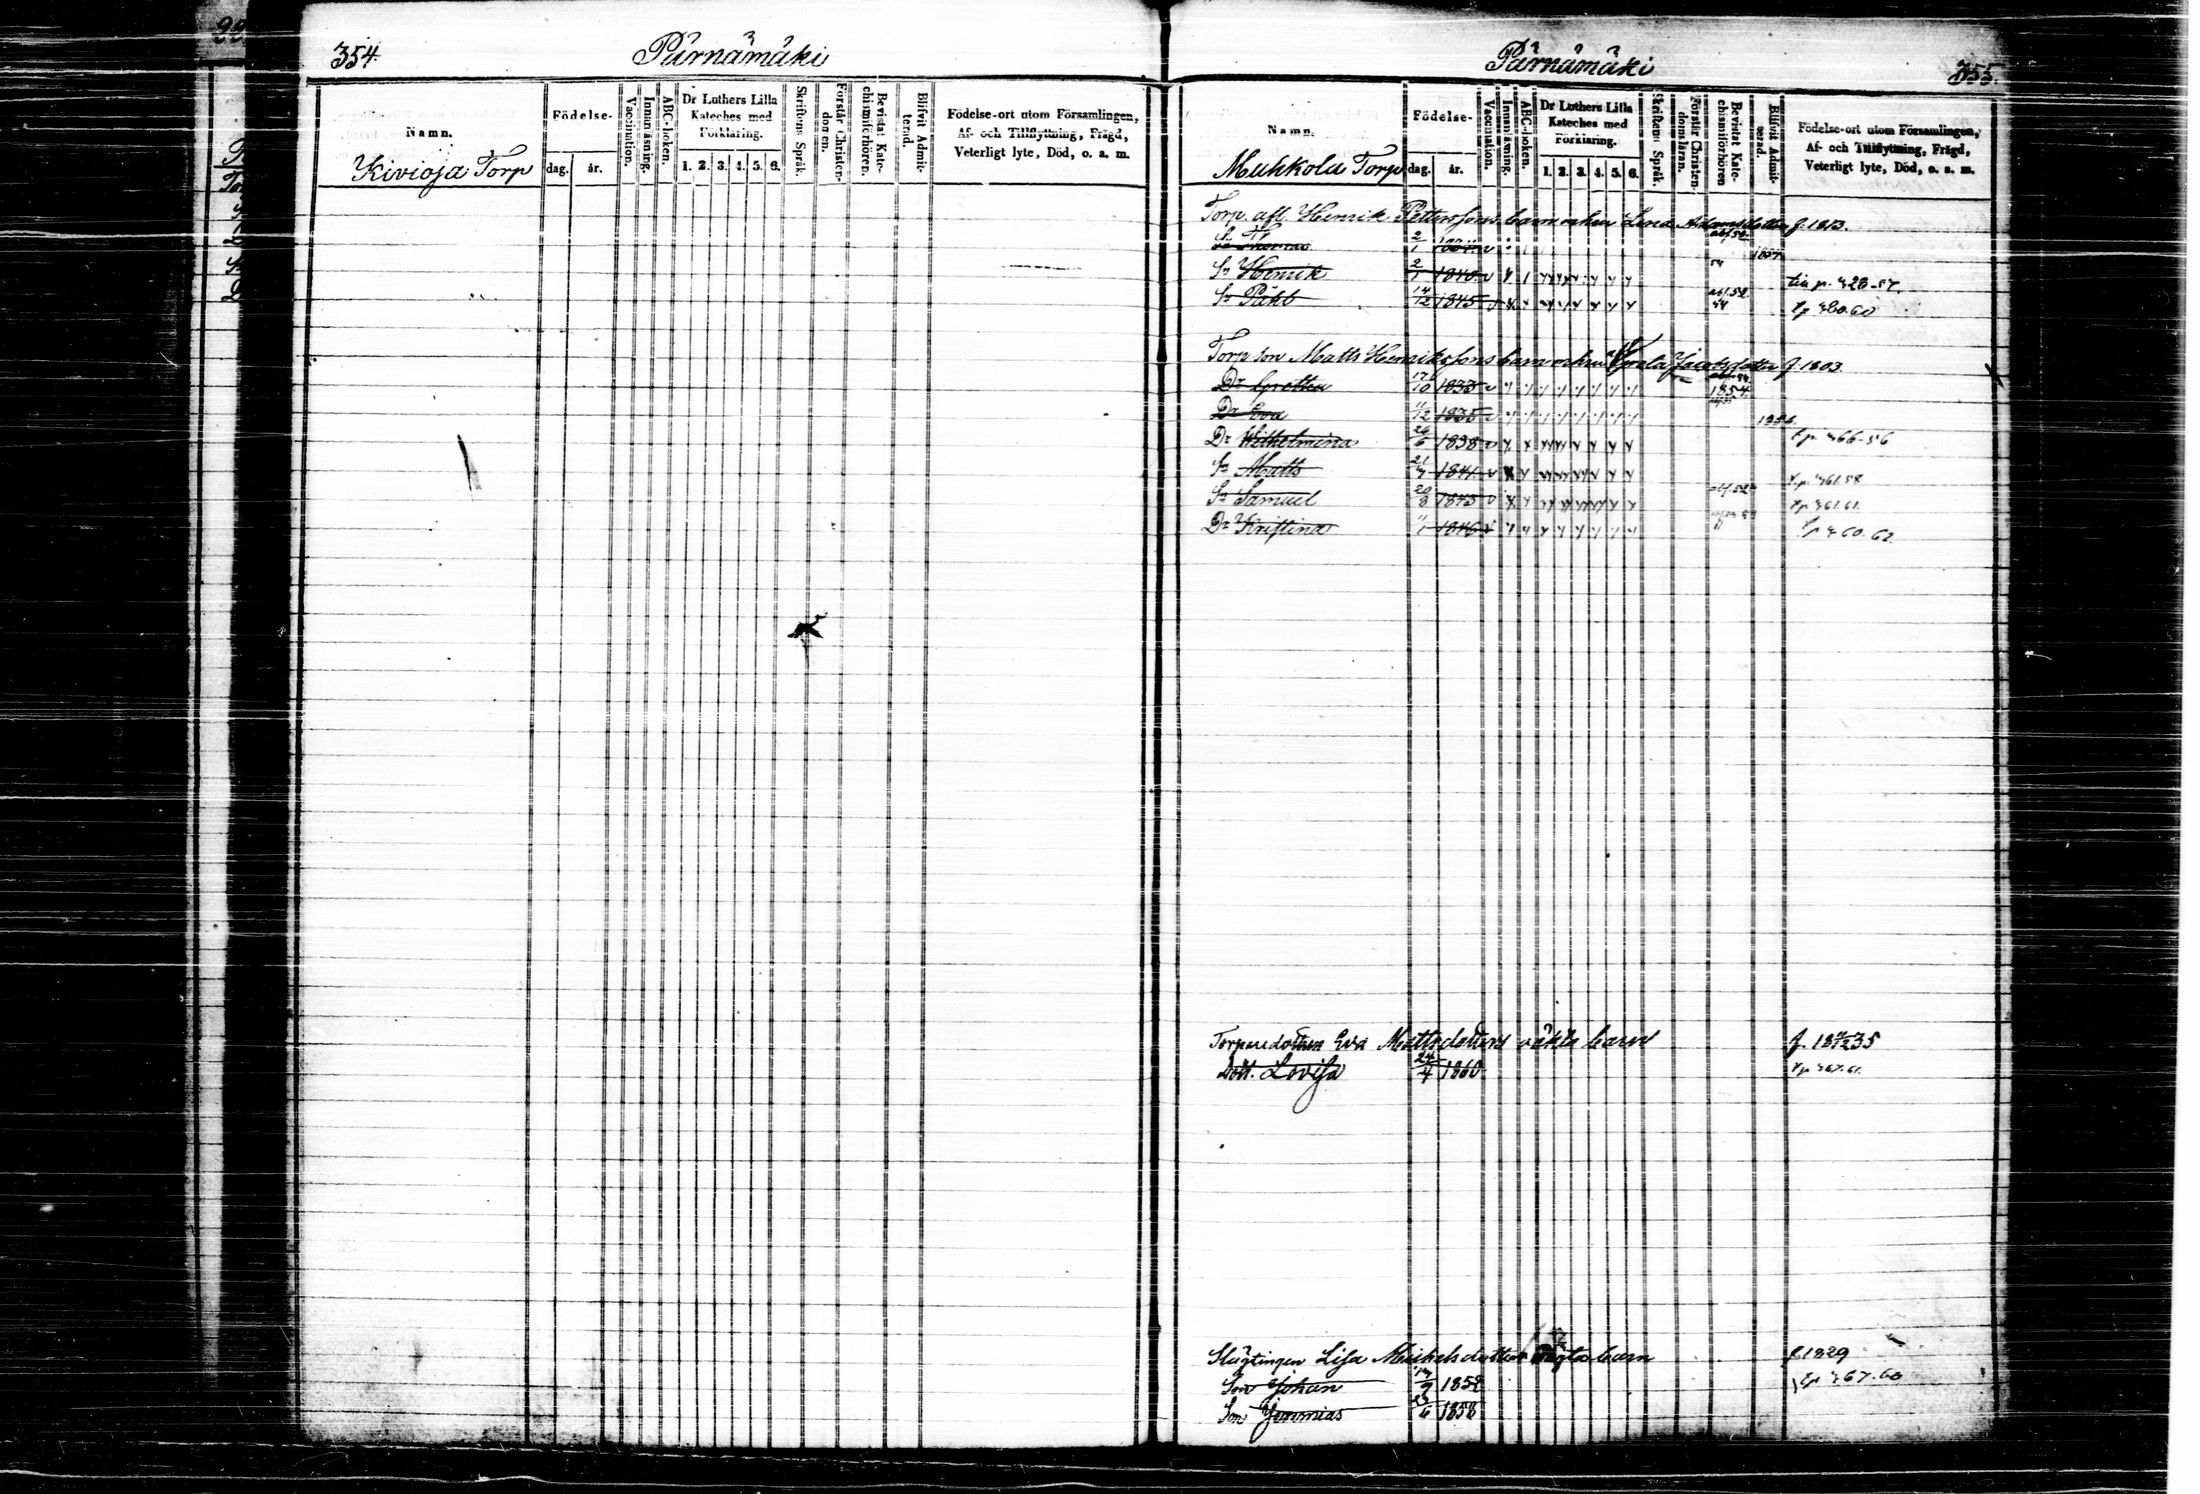 354.
Pärnämäki
Namn.
Kivioja Torp
Födelse-
dag. år.
Vaccination.
Innanläsning.
ABC-boken.
Dr Luthers Lilla
Kateches med
Förklaring.
1. 2. 3. 4. 5. 6.
Skriftens Språk.
Förstår Christen-
domen.
Bevistat Kate-
chismiförhören.
Blifvit Admit-
terad.
Födelse-ort utom Församlingen,
Af- och Tillflyttning, Frägd,
Veterligt lyte, Död, o. a. m.
Pärnämäki
355.
Namn.
Muhkola Torp
Födelse-
dag. år.
Vaccination.
Innanläsning.
ABC-boken.
Dr Luthers Lilla
Kateches med
Förklaring.
1. 2. 3. 4. 5. 6.
Skriftens Språk.
Förstår Christen-
domsläran.
Bevistat Kate-
chismiförhören
Blifvit Admit-
terad.
Födelse-ort utom Församlingen,
Af- och Tillflyttning, Frägd,
Veterligt lyte, Död, o. a. m.
Torp. afl. Henrik Petterssons barn och Lena Adamsdotter f. 1813.
Sn Thomas 2/1
Sn Henrik 2/1 1840 54 till p. 428-57.
Sn Påhl 14/12 1845 54 tp 480.60
Torp son Matts Henrikssons barn Jacobsdotter f. 1803.
Dr Gretha 17/10 1833 1854
Dr Eva 11/12 1835 1856
Dr Wilhelmina 26/6 1838 tp. 466-56
Sn Matts 21/4 1841 tp. 461.58
Sn Samuel 20/8 1843 tp 461.61.
Dr Kristina 11/1 1846 tp 460.62.
Torparedottren Eva Mattsdotters oäkta barn f. 18 11/12 35
Dott. Lovisa 24/4 1860 tp 467.61.
Slägtingen Lisa Michelsdotters barn f. 1829
Son Johan 14/9 1852 tp 467.60
Son Jeremias 23/6 1858